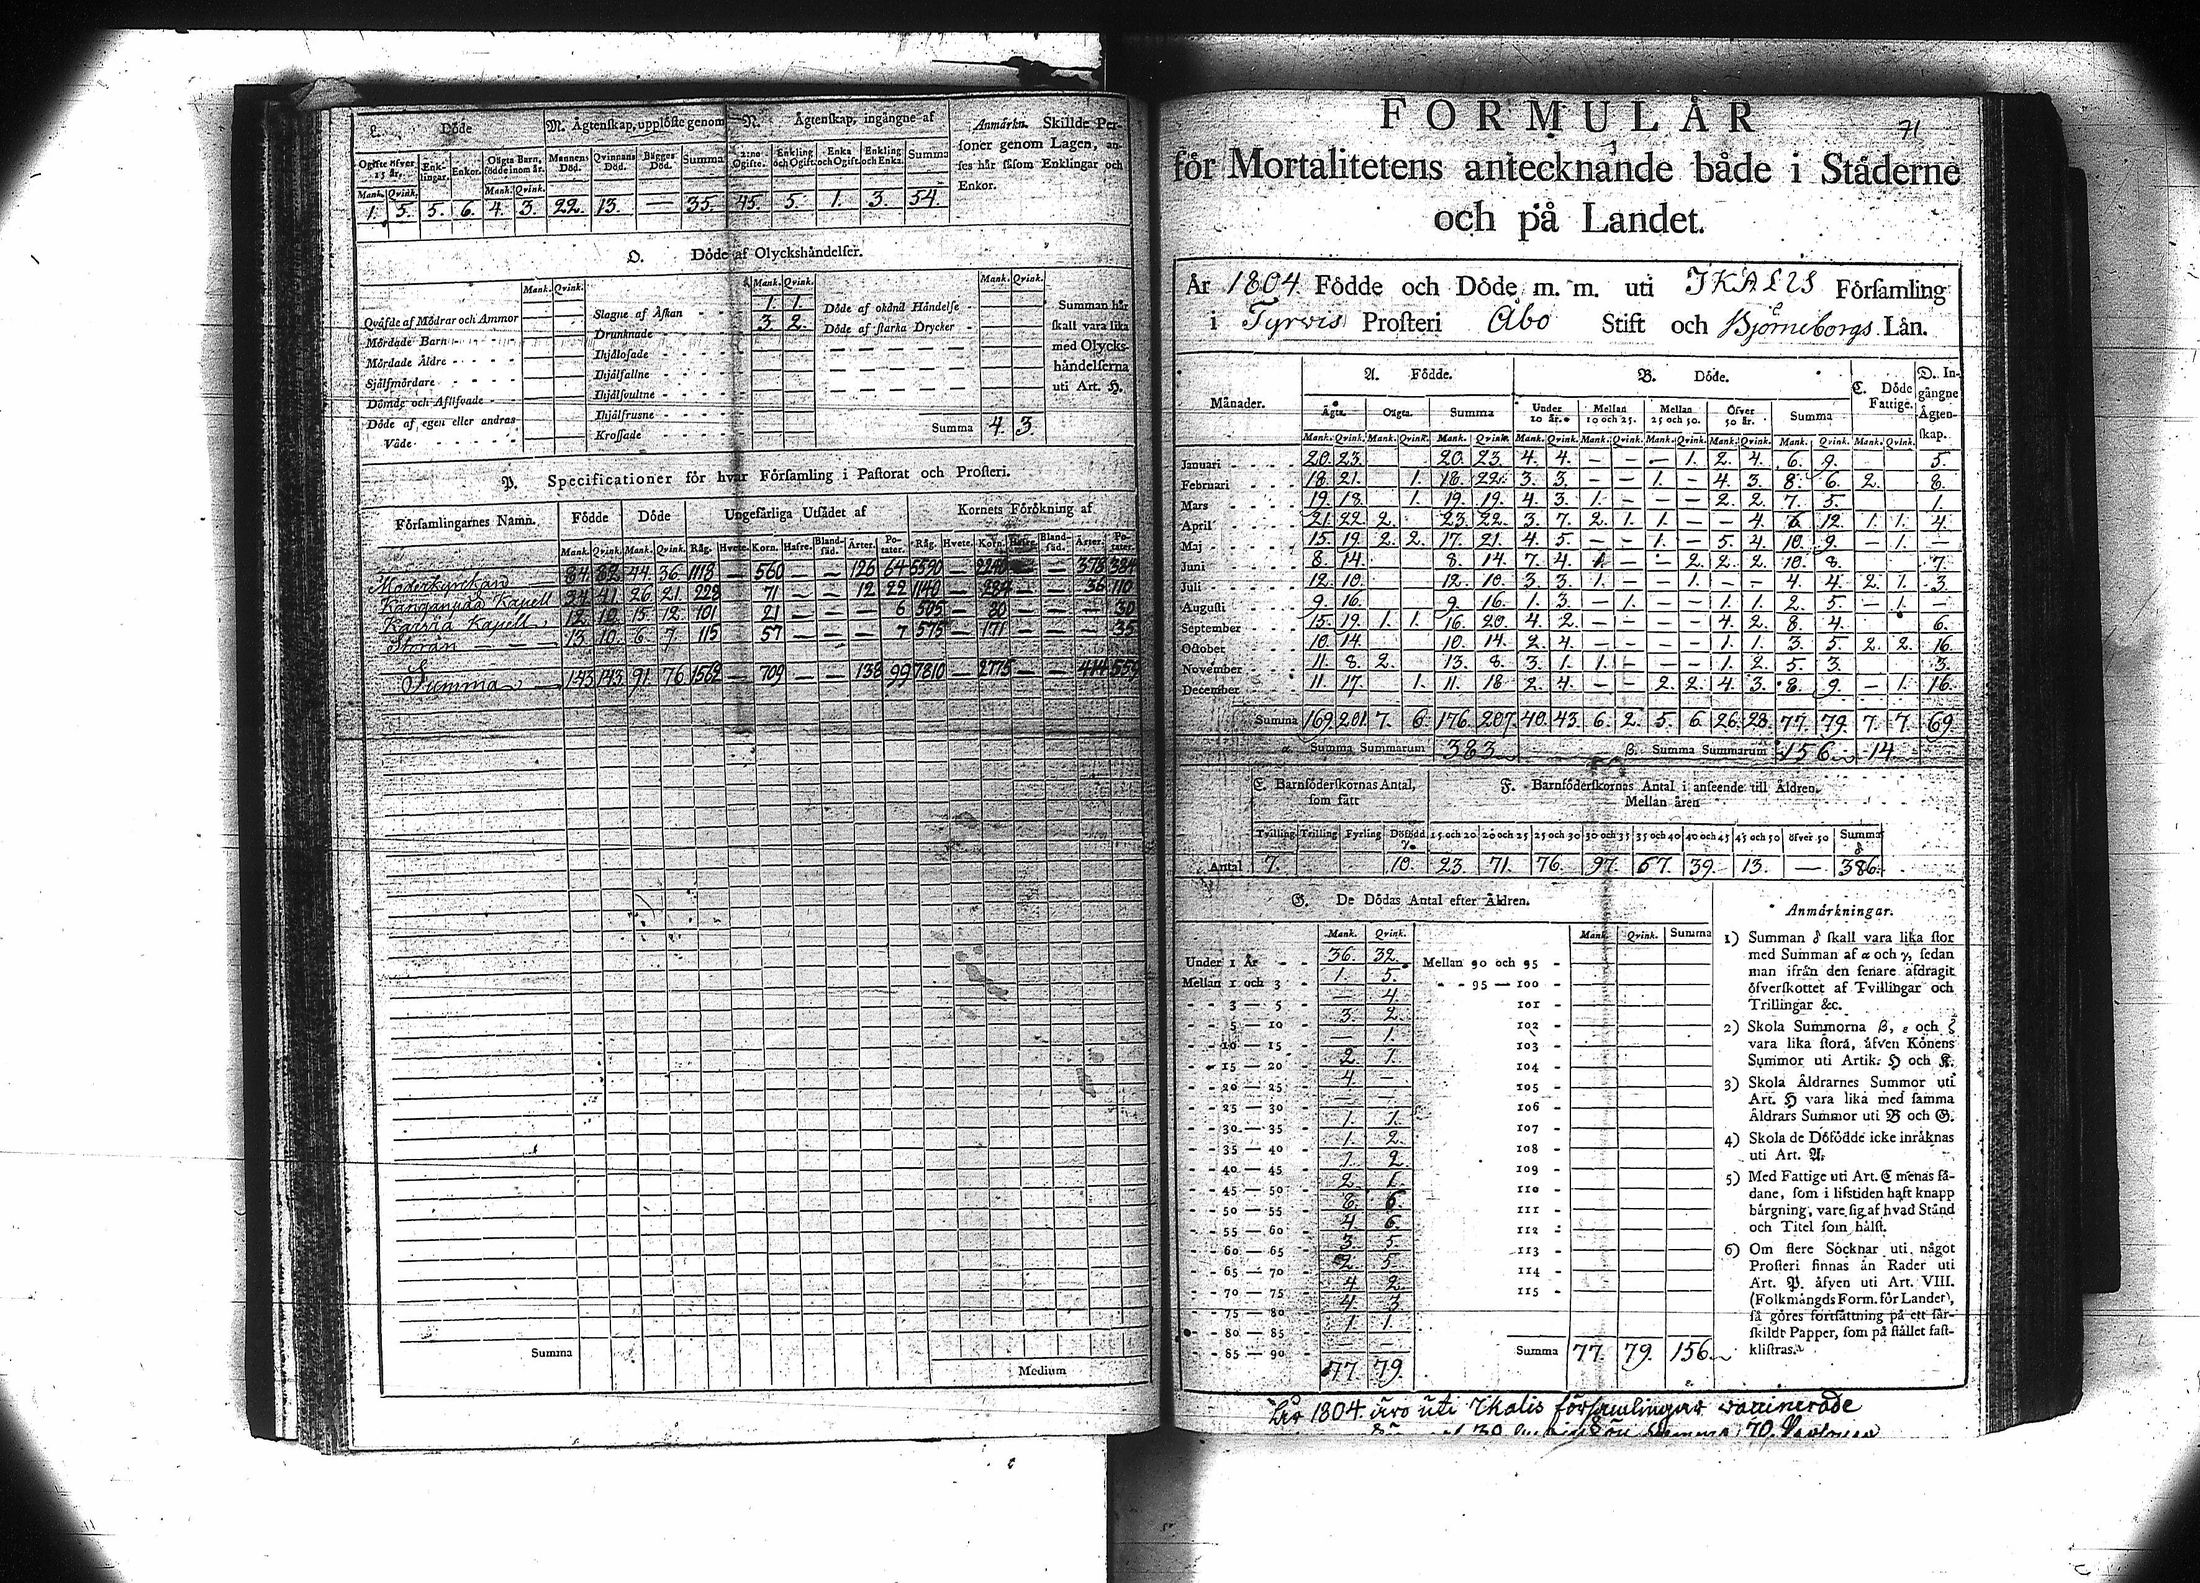 L. Döde
M. Ägtenskap, upplöste genom
N. Ägtenskap, ingångne af
Anmärkn. Skillde Personer genom Lagen, anses här såsom Enklingar och Enkor.
Ogifte öfver 15 år. Enklingar. Enkor. Oägta Barn, födde inom år. Mannens Död. Qvinnans Död. Bägges Död. Summa 2:ne Ogifte. Enkling och Ogift. Enka och Ogift. Enkling och Enka. Summa
Mank. Qvink. Mank. Qvink.
1. 5. 5. 6. 4. 3. 22. 13. — 35. 45. 5. 1. 3. 54.
O. Döde af Olyckshändelser.
Mank. Qvink. Mank. Qvink. Mank. Qvink.
Qväfde af Mödrar och Ammor
Mördade Barn
Mördade Äldre
Självmördare
Dömde och Aflifvade
Döde af egen eller andras Våde
Slagne af Åskan 1. 1.
Drunknade 3. 2.
Ihjälosade
Ihjälfallne
Ihjälsvultne
Ihjälfrusne
Krossade
Döde af okänd Händelse
Döde af starka Drycker
Summa 4. 3.
Summan här
skall vara lika
med Olycks-
händelserna
uti Art. H.
P. Specificationer för hvar Församling i Pastorat och Prosteri.
Församlingarnes Namn. Födde Döde Ungefärliga Utsädet af Kornets Förökning af
Mank. Qvink. Mank. Qvink. Råg. Hvete. Korn. Hafre. Blandsäd. Ärter. Potater. Råg. Hvete. Korn. Hafre. Blandsäd. Ärter. Potater.
Moderkyrckan 84. 82. 44. 36. 1118 — 560 — — 126 64 5590 — 2240 — — 378 384
Kapell 34. 41. 26. 21. 228 — 71 — — 12 22 1140 — 284 — — 36 110
Kapell 12. 10. 15. 12. 101 — 21 — — — 6 505 — 80 — — — 30
13. 10. 6. 7. 115 — 57 — — — 7 575 — 171 — — — 35
Summa 143 143 91. 76 1562 — 709 — — 138 99 7810 — 2775 — — 414 559
Summa
Medium
71
FORMULÄR
för Mortalitetens antecknande både i Städerne
och på Landet.
År 1804 Födde och Döde m. m. uti IKALIS Församling
i Tyrvis Prosteri Åbo Stift och Björneborgs Län.
Månader. A. Födde. B. Döde. C. Döde Fattige. D. Ingångne Ägtenskap.
Ägta. Oägta. Summa Under 10 år. Mellan 10 och 25. Mellan 25 och 50. Öfver 50 år. Summa
Mank. Qvink. Mank. Qvink. Mank. Qvink. Mank. Qvink. Mank. Qvink. Mank. Qvink. Mank. Qvink. Mank. Qvink. Mank. Qvink.
Januari 20. 23. 20. 23. 4. 4. — — — 1. 2. 4. 6. 9. 5.
Februari 18. 21. 1. 18. 22. 3. 3. — — 1. — 4. 3. 8. 6. 2. 8.
Mars 19. 18. 1. 19. 19. 4. 3. 1. — — — 2. 2. 7. 5. 1.
April 21. 22. 2. 23. 22. 3. 7. 2. 1. 1. — — 4. 6. 12. 1. 1. 4.
Maj 15. 19. 2. 2. 17. 21. 4. 5. — — 1. — 5. 4. 10. 9. — 1. —
Juni 8. 14. 8. 14. 7. 4. 1. — — 2. 2. 2. 10. 8. 7.
Juli 12. 10. 12. 10. 3. 3. 1. — — 1. — — 4. 4. 2. 1. 3.
Augusti 9. 16. 9. 16. 1. 3. — 1. — — 1. 1. 2. 5. — 1. —
September 15. 19. 1. 1. 16. 20. 4. 2. — — — — 4. 2. 8. 4. 6.
October 10. 14. 10. 14. 2. 4. — — — — 1. 1. 3. 5. 2. 2. 16.
November 11. 8. 2. 13. 8. 3. 1. 1. — — — 1. 2. 5. 3. 3.
December 11. 17. 1. 11. 18. 2. 4. — — 2. 2. 4. 3. 8. 9. — 1. 16.
Summa 169. 201. 7. 6. 176. 207. 40. 43. 6. 2. 5. 6. 26. 28. 77. 79. 7. 7. 69.
α Summa Summarum 383 β. Summa Summarum 156 14
E. Barnföderskornas Antal, som fått
F. Barnföderskornas Antal i anseende till Åldren. Mellan åren
Tvilling Trilling Fyrling Dödfödd γ. 15 och 20 20 och 25 25 och 30 30 och 35 35 och 40 40 och 45 45 och 50 öfver 50 Summa δ
Antal 7. 10. 23. 71. 76. 97. 67. 39. 13. — 386.
G. De Dödas Antal efter Åldren.
Mank. Qvink. Mank. Qvink. Summa
Under 1 År 36. 32.
Mellan 1 och 3 1. 5.
3 — 5 — 4.
5 — 10 3. 2.
10 — 15 — 1.
15 — 20 2. 1.
20 — 25 4. —
25 — 30
30 — 35 1. 1.
35 — 40 1. 2.
40 — 45 1. 2.
45 — 50 2. 1.
50 — 55 8. 6.
55 — 60 4. 6.
60 — 65 3. 5.
65 — 70 2. 5.
70 — 75 4. 2.
75 — 80 4. 3.
80 — 85 1. 1.
85 — 90
77. 79.
Mellan 90 och 95
95 — 100
101
102
103
104
105
106
107
108
109
110
111
112
113
114
115
Summa 77. 79. 156.
Anmärkningar.
1) Summan δ skall vara lika stor
med Summan af α och γ, sedan
man ifrån den senare afdragit
öfverskottet af Tvillingar och
Trillingar &c.
2) Skola Summorna β, ε och ζ
vara lika stora, äfven Könens
Summor uti Artik. H och K.
3) Skola Åldrarnes Summor uti
Art. H vara lika med samma
Åldrars Summor uti B och G.
4) Skola de Dödfödde icke inräknas
uti Art. A.
5) Med Fattige uti Art. C menas så-
dane, som i lifstiden haft knapp
bärgning, vare sig af hvad Stånd
och Titel som hälst.
6) Om flere Socknar uti något
Prosteri finnas än Rader uti
Art. P. äfven uti Art. VIII.
(Folkmängds Form. för Landet),
så göres fortsättning på ett sär-
skildt Papper, som på stället fast-
klistras.
År 1804 äro uti Ikalis församlingar vaccinerade
Summa 70. Personer